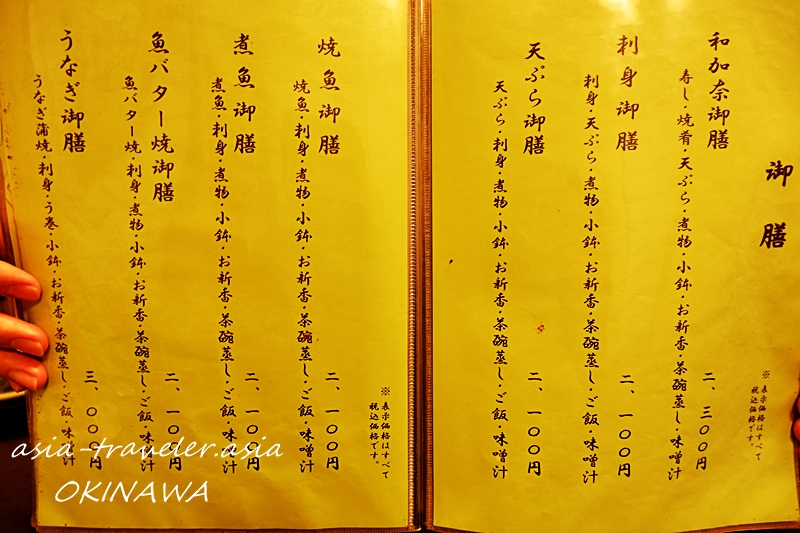 御膳
和加奈御膳
寿し・焼肴・天ぷら・煮物・小鉢・お新香・茶碗蒸し・味噌汁
二、三〇〇円
※表示価格はすべて
税込価格です。
刺身御膳
刺身・天ぷら・煮物・小鉢・お新香・茶碗蒸し・ご飯・味噌汁
二、一〇〇円
天ぷら御膳
天ぷら・刺身・煮物・小鉢・お新香・茶碗蒸し・ご飯・味噌汁
二、一〇〇円
※表示価格はすべて
税込価格です。
焼魚御膳
焼魚・刺身・煮物・小鉢・お新香・茶碗蒸し・ご飯・味噌汁
二、一〇〇円
煮魚御膳
煮魚・刺身・煮物・小鉢・お新香・茶碗蒸し・ご飯・味噌汁
二、一〇〇円
魚バター焼御膳
魚バター焼・刺身・煮物・小鉢・お新香・茶碗蒸し・ご飯・味噌汁
二、一〇〇円
うなぎ御膳
うなぎ蒲焼・刺身・う巻・小鉢・お新香・茶碗蒸し・ご飯・味噌汁
三、〇〇〇円
asia-traveler.asia
OKINAWA